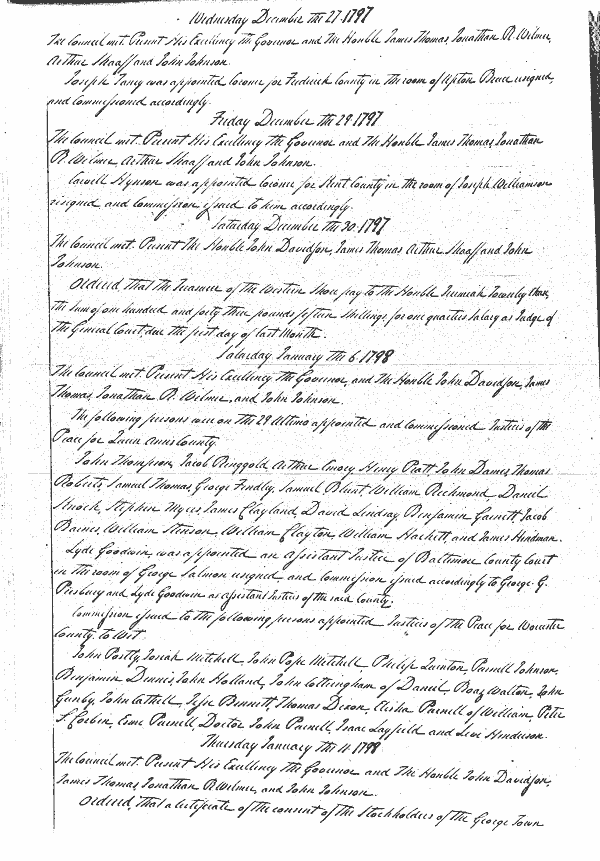 Wednesday December the 27 1797
The Council met. Present His Excellency the Governor and the Honble James Thomas, Jonathan R. Wilmer,
Arthur Shaaff and John Johnson.
Joseph Taney was appointed Coroner for Frederick County in the room of Upton Bruce resigned,
and Commissioned accordingly.
Friday December the 29 1797
The Council met. Present His Excellency the Governor and the Honble James Thomas Jonathan
R. Wilmer, Arthur Shaaff and John Johnson.
Hynson was appointed Coroner for Kent County in the room of Joseph Williamson
resigned and Commission issued to him accordingly.
Saturday December the 30 1797
The Council met. Present The Honble John Davidson, James Thomas Arthur Shaaff and John
Johnson.
Ordered that the Treasurer of the Western Shore pay to the Honble Jeremiah Townly Chase
the sum of one hundred and forty three pounds fifteen shillings, for one quarters Salary as Judge of
the General Court, due the first day of last Month.
Saturday January the 6 1798
The Council met. Present His Excellency the Governor, and the Honble John Davidson, James
Thomas, Jonathan R. Wilmer, and John Johnson.
The following persons were on the 29 Ultimo appointed and Commissioned Justices of the
Peace for Queen Anns County.
John Thompson, Jacob Ringgold Arthur Emory, Henry Pratt, John Dames, Thomas
Roberts, Samuel Thomas, George Findley, Samuel Blunt, William Richmond Daniel
Stephen Myers James Clayland, David Lindsay Benjamin Garnett, Jacob
Barnes, William Stenson, William Clayton, William Hackett, and James Hindman.
Lyde Goodwin, was appointed an assistant Justice of Baltimore County Court
in the room of George Salmon resigned and Commission issued accordingly to George G.
Presbury and Lyde Goodwin as assistant Justices of the said County.
Commission issued to the following persons appointed Justices of the Peace for Worcester
County, to Wit.
John Postly, Josiah Mitchell, John Pope Mitchell, Philip Quinton, Purnell Johnson,
Benjamin Dennis, John Holland, John Cottingham of Daniel, Boaz Walton, John
Gunby, John Cathell, Jesse Bennett, Thomas Dixon, Elisha Purnell of William, Peter
Corbin, Esme Purnell, Doctor John Purnell, Isaac Layfield and Levi Henderson.
Thursday January the 11 1798
The Council met. Present His Excellency the Governor and the Honble John Davidson,
James Thomas, Jonathan R. Wilmer, and John Johnson.
Ordered, that a Certificate of the consent of the Stockholders of the George Town